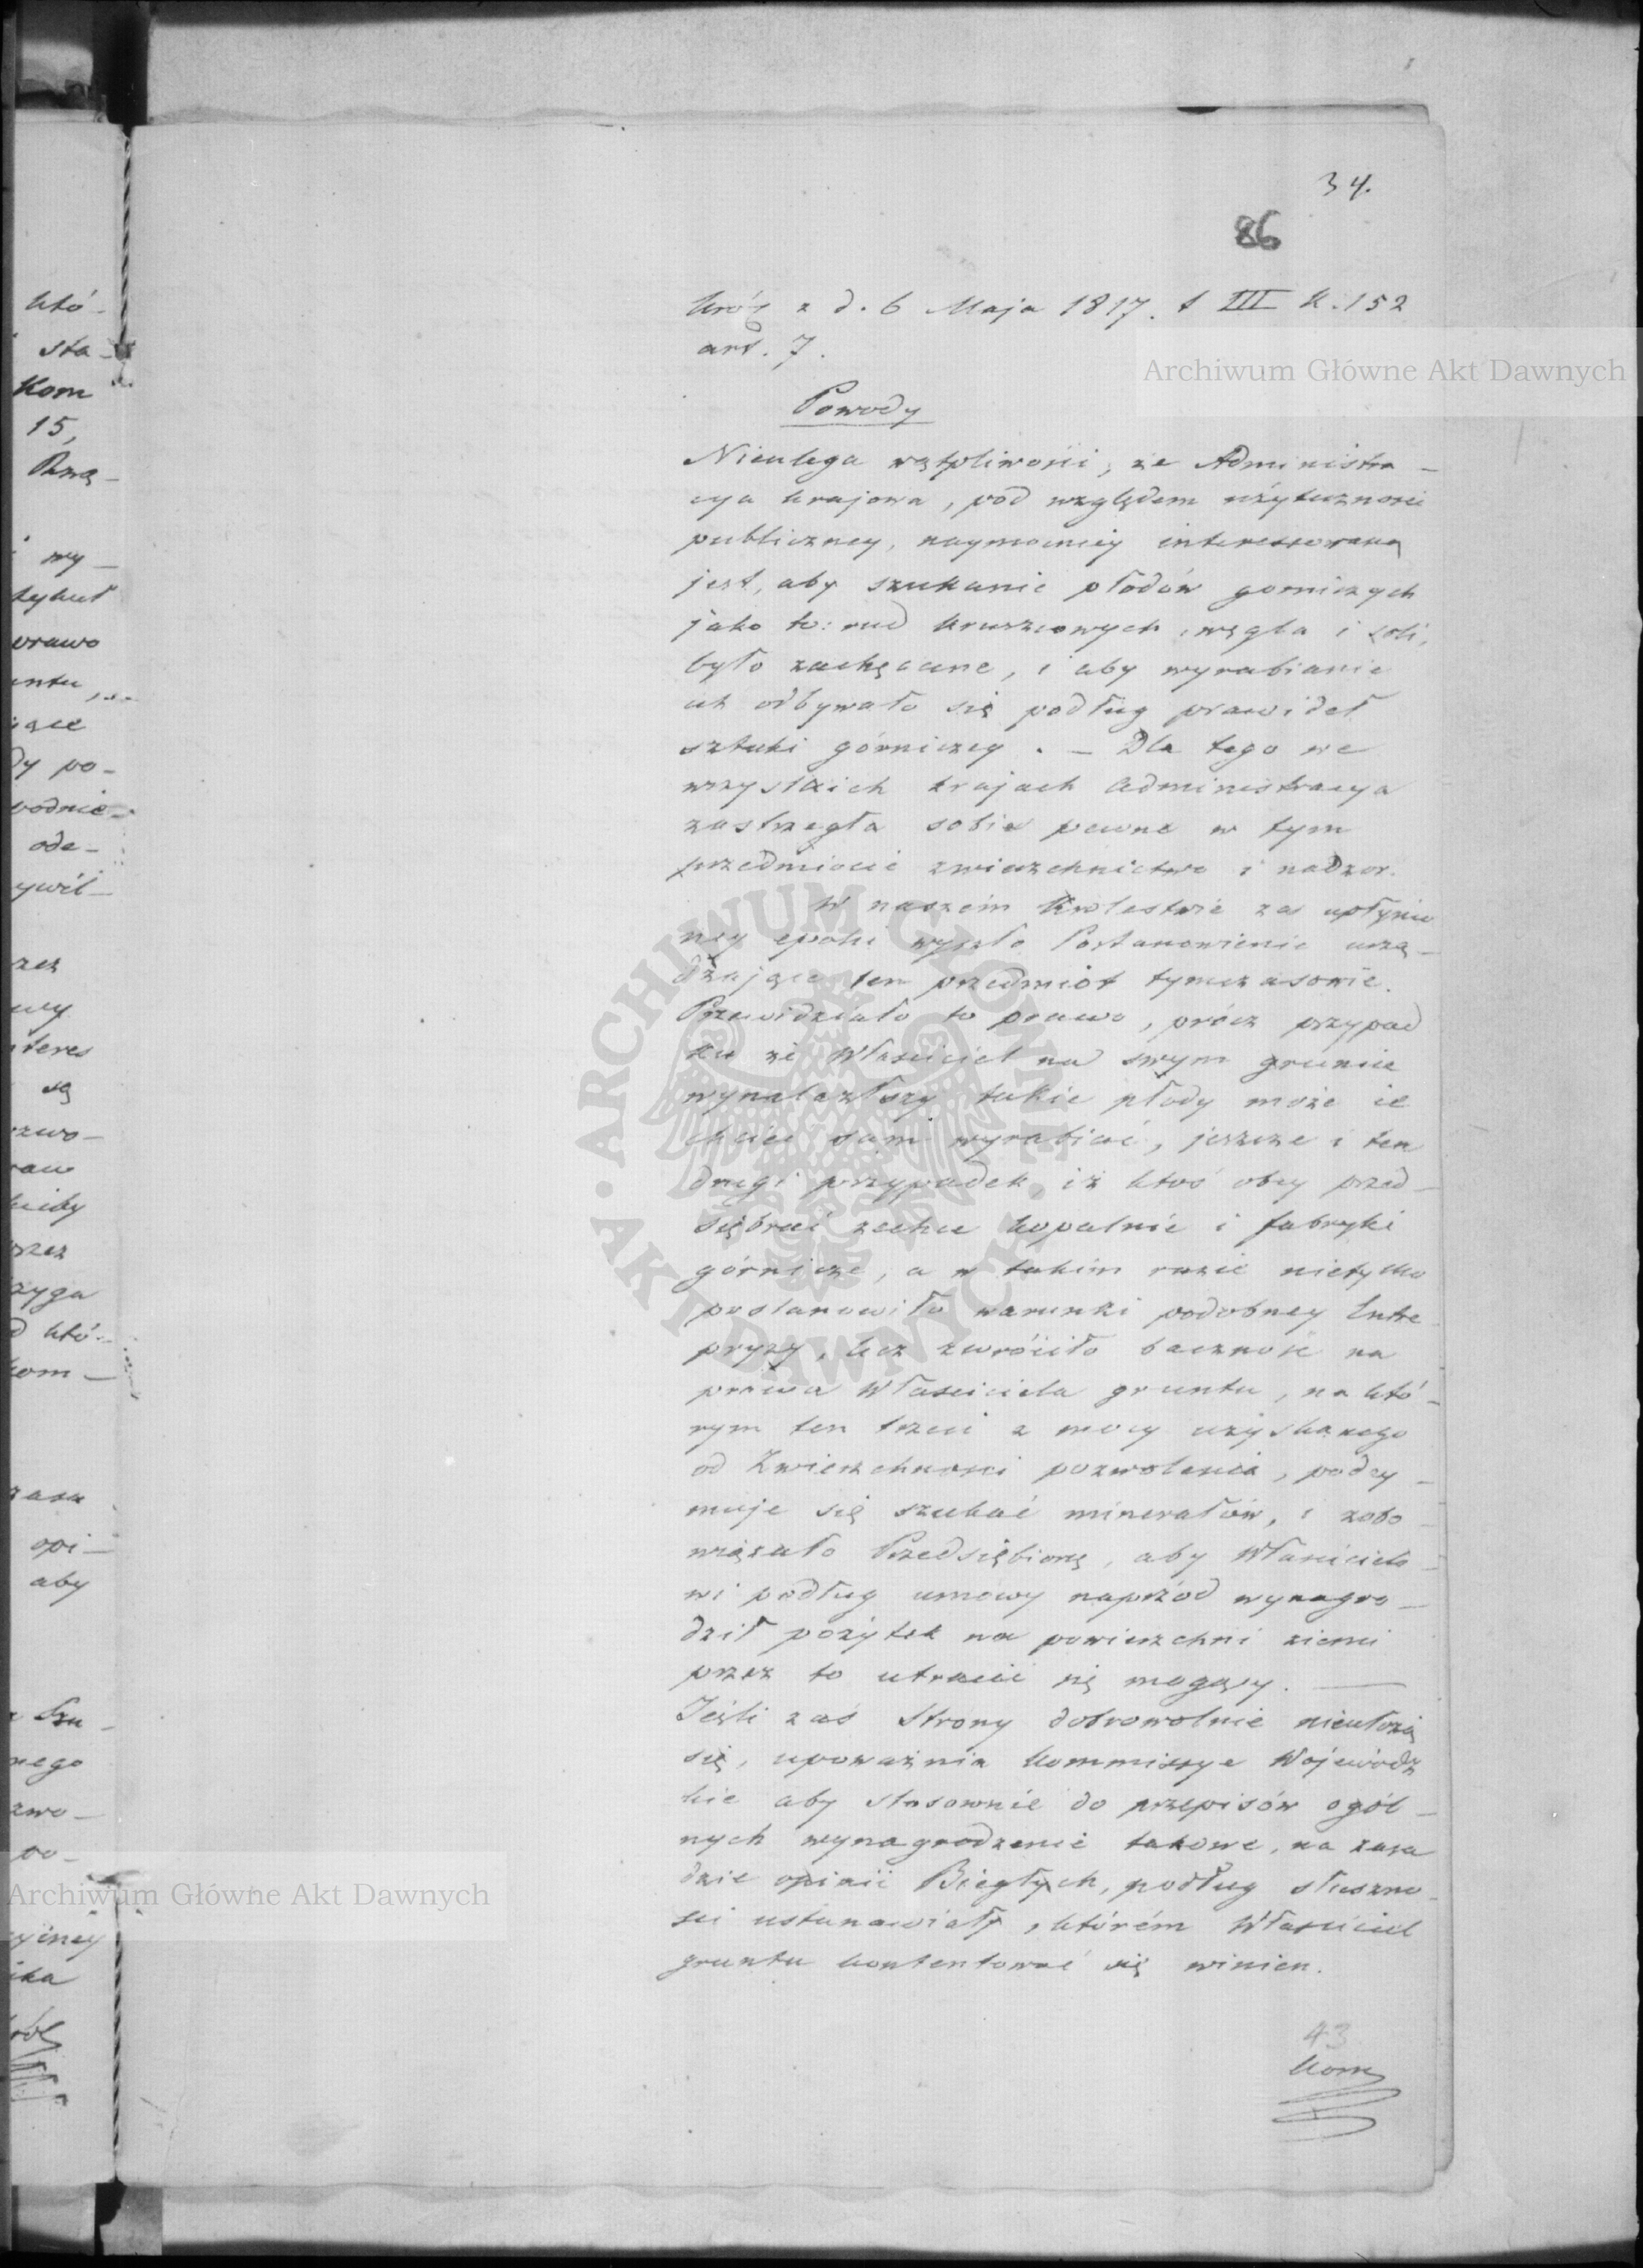 34.
86
Król z d. 6 Maja 1817. t III k. 152
art. 7.
Powody
Nieulega wątpliwości, że Administra-
cya krajowa, pod względem użyteczności
publiczney, naymocniey interessowaną
jest, aby szukanie płodów gorniczych
jako to: rud kruszcowych, węgla i soli,
było zachęcane, i aby wyrabianie
ich odbywało się podług prawideł
sztuki górniczey. - Dla tego we
wszystkich krajach Administracya
zastrzegła sobie pewne w tym
przedmiocie zwierzchnictwo i nadzor.
W naszém Królestwie za upłynio
ney epoki wyszło Postanowienie urzą-
dzające ten przedmiot tymczasowie.
Przewidziało to prawo, prócz przypad
ku że Właściciel na swym gruncie
wynalazłszy takie płody może ie
chcieć sam wyrabiać, jeszcze i ten
drugi przypadek iż ktoś obcy przed-
siębrać zechce kopalnie i fabryki
górnicze, a w takim razie nietylko
postanowiło warunki podobney Entre
pryzy, lecz zwróciło baczność na
prawa Właściciela gruntu, na któ-
rym ten trzeci z mocy uzyskanego
od Zwierzchności pozwolenia, podey-
muje się szukać minerałów, i zobo-
wiązało Przedsiębiorcę, aby Właścicielo-
wi podług umowy naprzód wynagro-
dził pożytek na powierzchni ziemi
przez to utracić się mogący. -
Jeśli zaś Strony dobrowolnie nieułożą
się, upoważnia Kommissye Wojewódz
kie aby stosownie do przepisów ogól-
nych wynagrodzenie takowe, na zasa
dzie opinii Biegłych, podług słuszno-
ści ustanawiały, którém Właściciel
gruntu kontentować się winien.
43
Kom
Archiwum Główne Akt Dawnych
ARCHIWUM GŁÓWNE AKT DAWNYCH
Archiwum Główne Akt Dawnych
któ-
sta-
Kom
15,
Rzą-
wy-
tykuł
prawo
dy po-
ode-
ywil-
teres
są
przez
zyga
któ-
kom-
opi-
aby
Szu-
nego
zwo-
po-